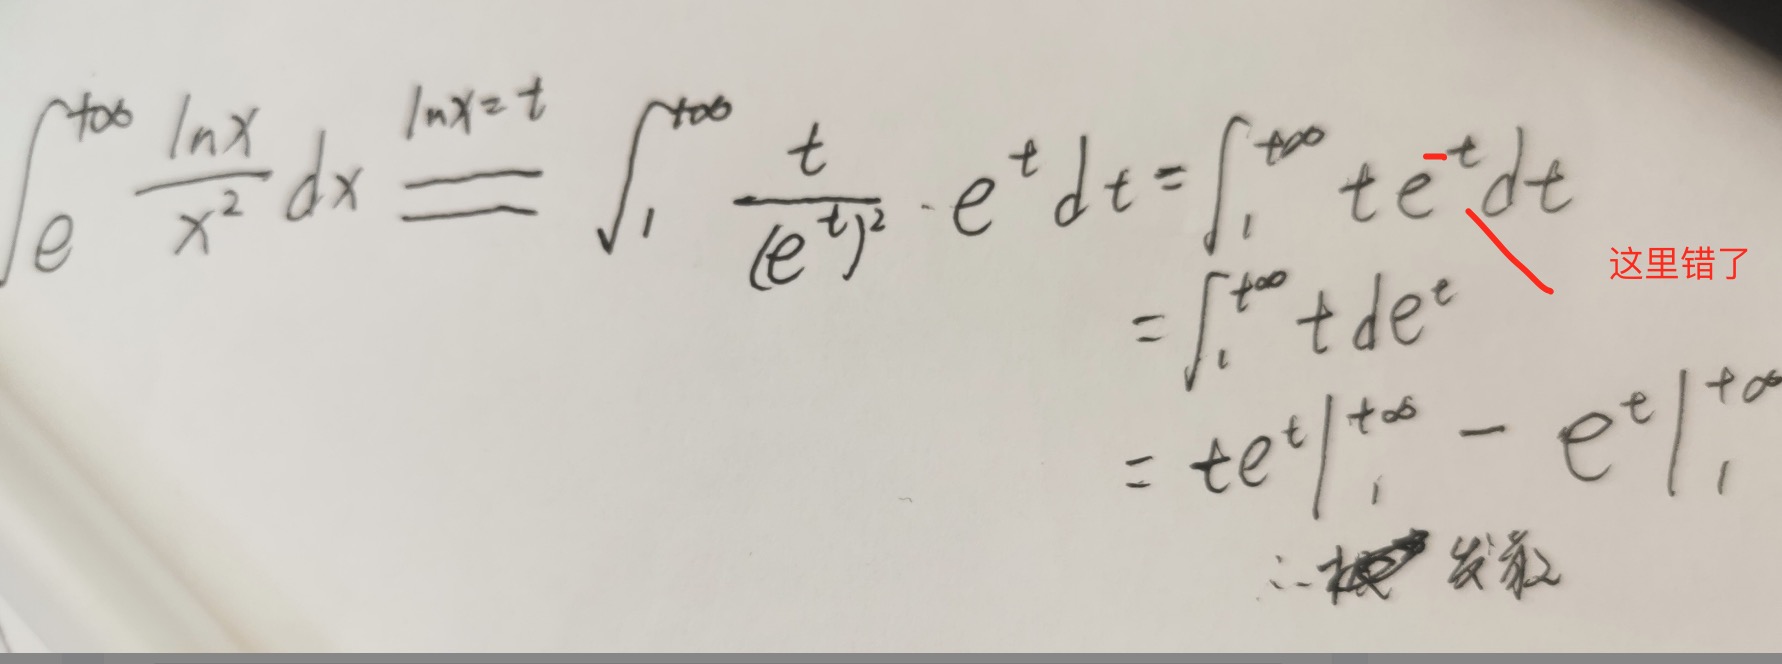 ∫_e^{+∞} \frac{lnx}{x^2} dx \overset{lnx=t}{=} ∫_1^{+∞} \frac{t}{(e^t)^2} · e^t dt = ∫_1^{+∞} t e^{-t} dt
这里错了
= ∫_1^{+∞} t de^t
= te^t |_1^{+∞} - e^t |_1^{+∞}
∴ 发散